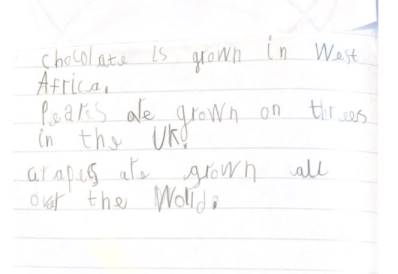 chocolate is grown in West
Africa.
Pears are grown on threes
in the UK.
Grapes are grown all
over the World.